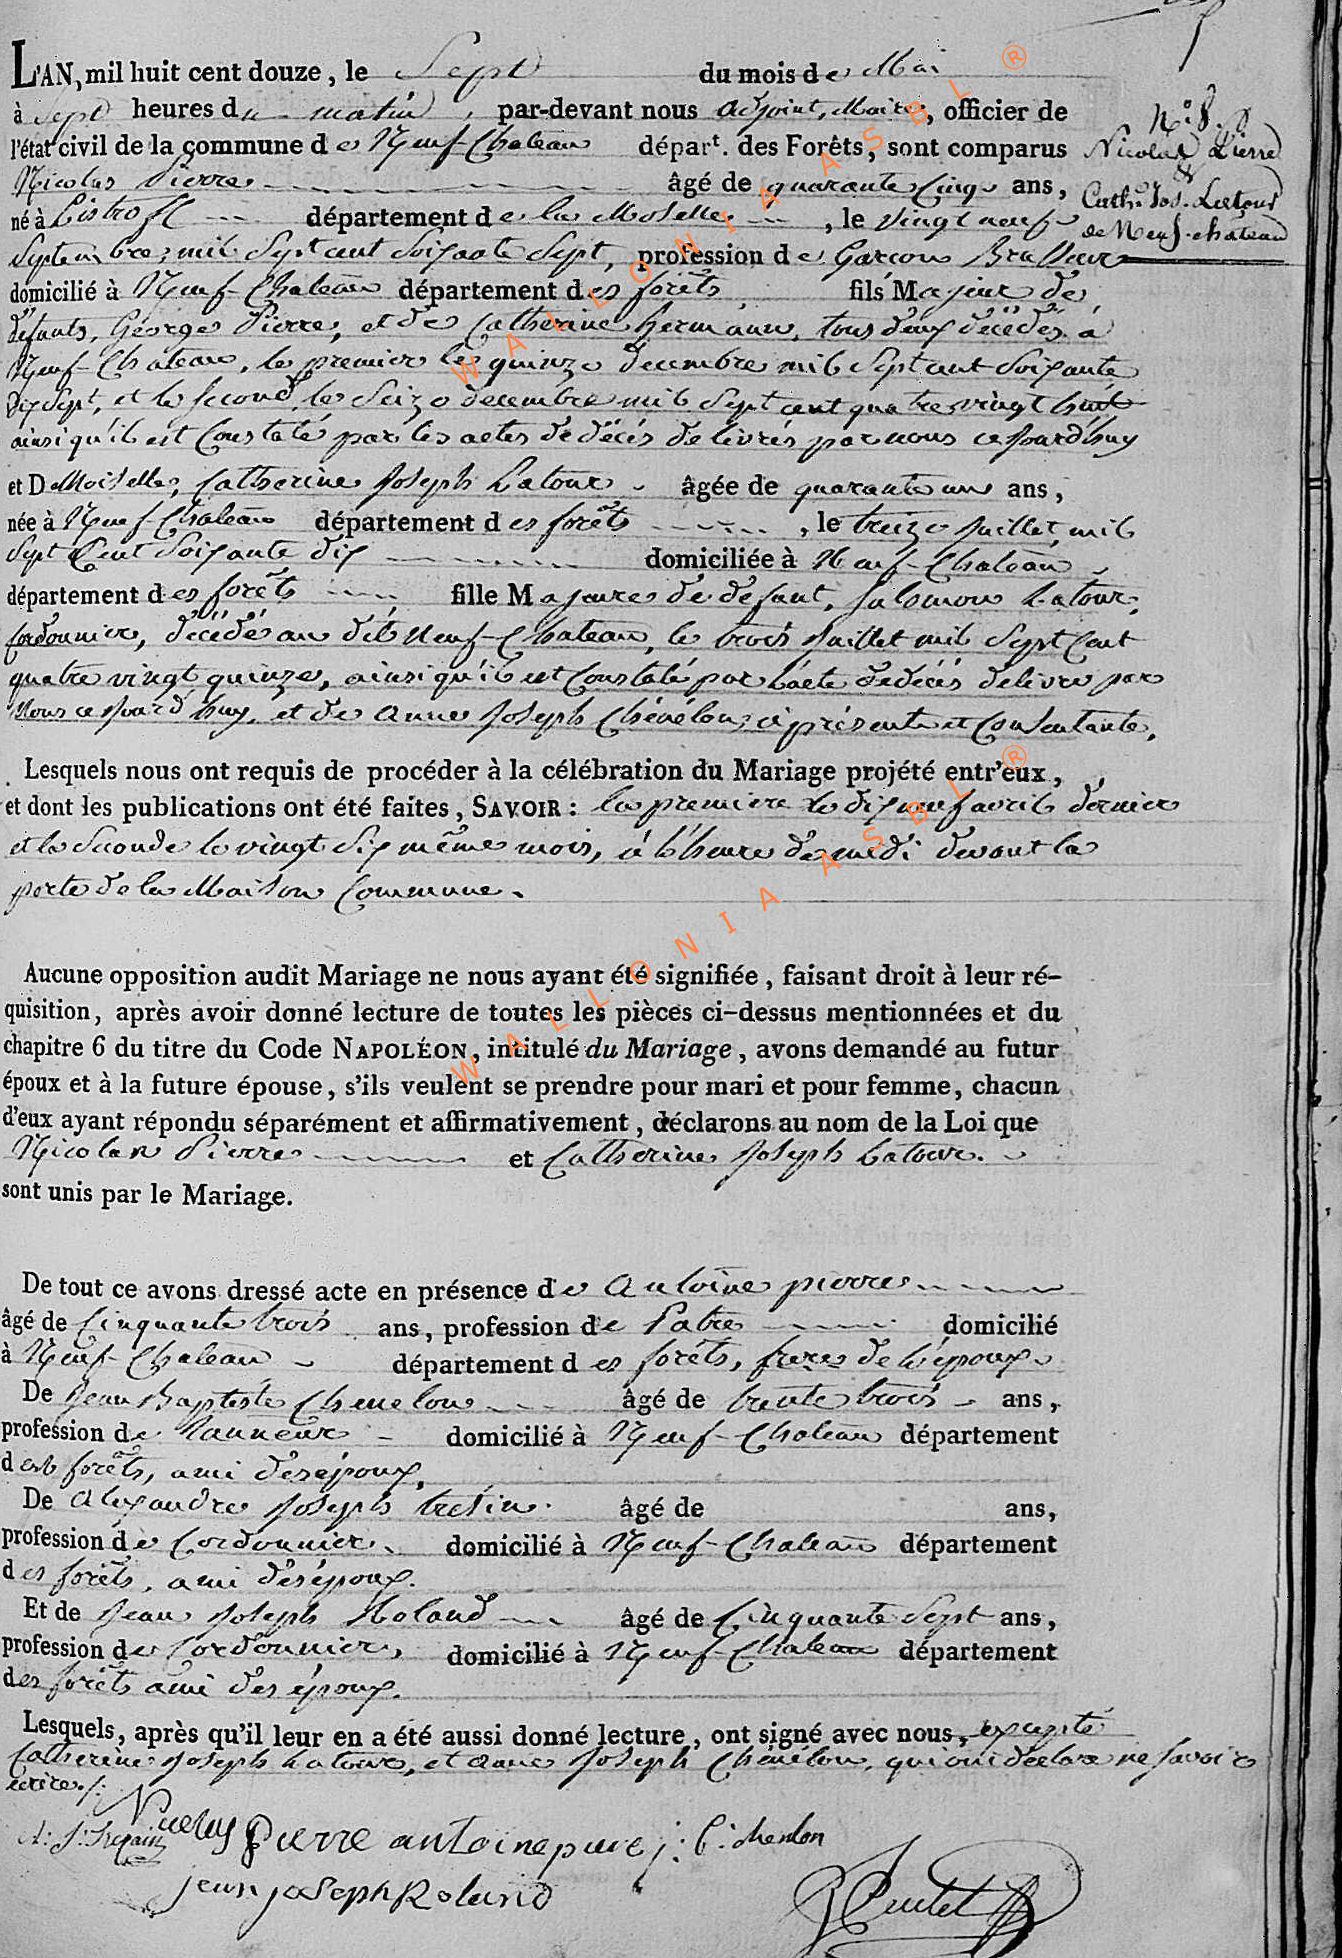 L'AN, mil huit cent douze, le Sept du mois de Mai
à Sept heures du matin, par-devant nous adjoint, Maire, officier de
l'état civil de la commune de Neuf-Chateau départ. des Forêts, sont comparus
Nicolas Pierre âgé de quarante Cinq ans,
né à Listroff département de la Moselle, le vingt neuf
Septembre mil Sept cent Soixante Sept, profession de Garçon Brasseur
domicilié à Neuf-Chateau département des forêts fils Majeur de
défunts, George Pierre, et de Catherine hermann, tous deux décédés à
Neuf-Chateau, le premier le quinze decembre mil Sept cent Soixante
Dix Sept, et le second, le Seize decembre mil Sept cent quatre vingt huit
ainsi qu'il est Constaté par les actes de décés delivrés par nous cejourd'huy
et DeMoiselle, Catherine Joseph Latour âgée de quarante un ans,
née à Neuf-Chateau département des forêts, le treize Juillet, mil
Sept Cent Soixante dix domiciliée à Neuf-Chateau
département des forêts fille Majeure de defunt, Salomon Latour,
Cordonnier, décédé au dit Neuf-Chateau, le trois Juillet mil Sept Cent
quatre vingt quinze, ainsi qu'il est Constaté par l'acte de décés delivré par
Nous cejourd'huy, et de anne Joseph Chénélon, ci présente et Consentante.
Lesquels nous ont requis de procéder à la célébration du Mariage projété entr'eux,
et dont les publications ont été faites, SAVOIR : la premiere le dix neuf avril dernier
et la Seconde le vingt Six même mois, à l'heure de midi devant la
porte de la Maison Commune.
Aucune opposition audit Mariage ne nous ayant été signifiée, faisant droit à leur ré-
quisition, après avoir donné lecture de toutes les pièces ci-dessus mentionnées et du
chapitre 6 du titre du Code NAPOLÉON, intitulé du Mariage, avons demandé au futur
époux et à la future épouse, s'ils veulent se prendre pour mari et pour femme, chacun
d'eux ayant répondu séparément et affirmativement, déclarons au nom de la Loi que
Nicolas Pierre et Catherine Joseph Latour.
sont unis par le Mariage.
De tout ce avons dressé acte en présence de Antoine pierre
âgé de Cinquante trois ans, profession de Patre domicilié
à Neuf-Chateau département des forêts, frere de l'époux
De Jean Baptiste Chenelon âgé de trente trois ans,
profession de Tanneur domicilié à Neuf-Chateau département
des forêts, ami des époux.
De Alexandre Joseph âgé de ans,
profession de Cordonnier domicilié à Neuf-Chateau département
des forêts, ami des époux.
Et de Jean Joseph Roland âgé de Cinquante Sept ans,
profession de Cordonnier, domicilié à Neuf-Chateau département
des forêts ami des époux.
Lesquels, après qu'il leur en a été aussi donné lecture, ont signé avec nous, excepté
Catherine Joseph Latour, et anne Joseph Chénélon, qui ont déclaré ne Savoir
écrire.
Nicolas Pierre antoine pierre j: b: chenlon
jean joseph Roland
N.° 8.
Nicolas Pierre
&
Cath. Jos. Latour
de Neuf-chateau
WALLONIA ASBL ®
WALLONIA ASBL ®